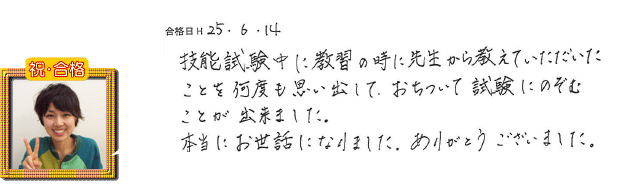 合格日 H 25. 6. 14
技能試験中に教習の時に先生から教えていただいた
ことを何度も思い出して、おちついて試験にのぞむ
ことが出来ました。
本当にお世話になりました。ありがとうございました。
祝・合格